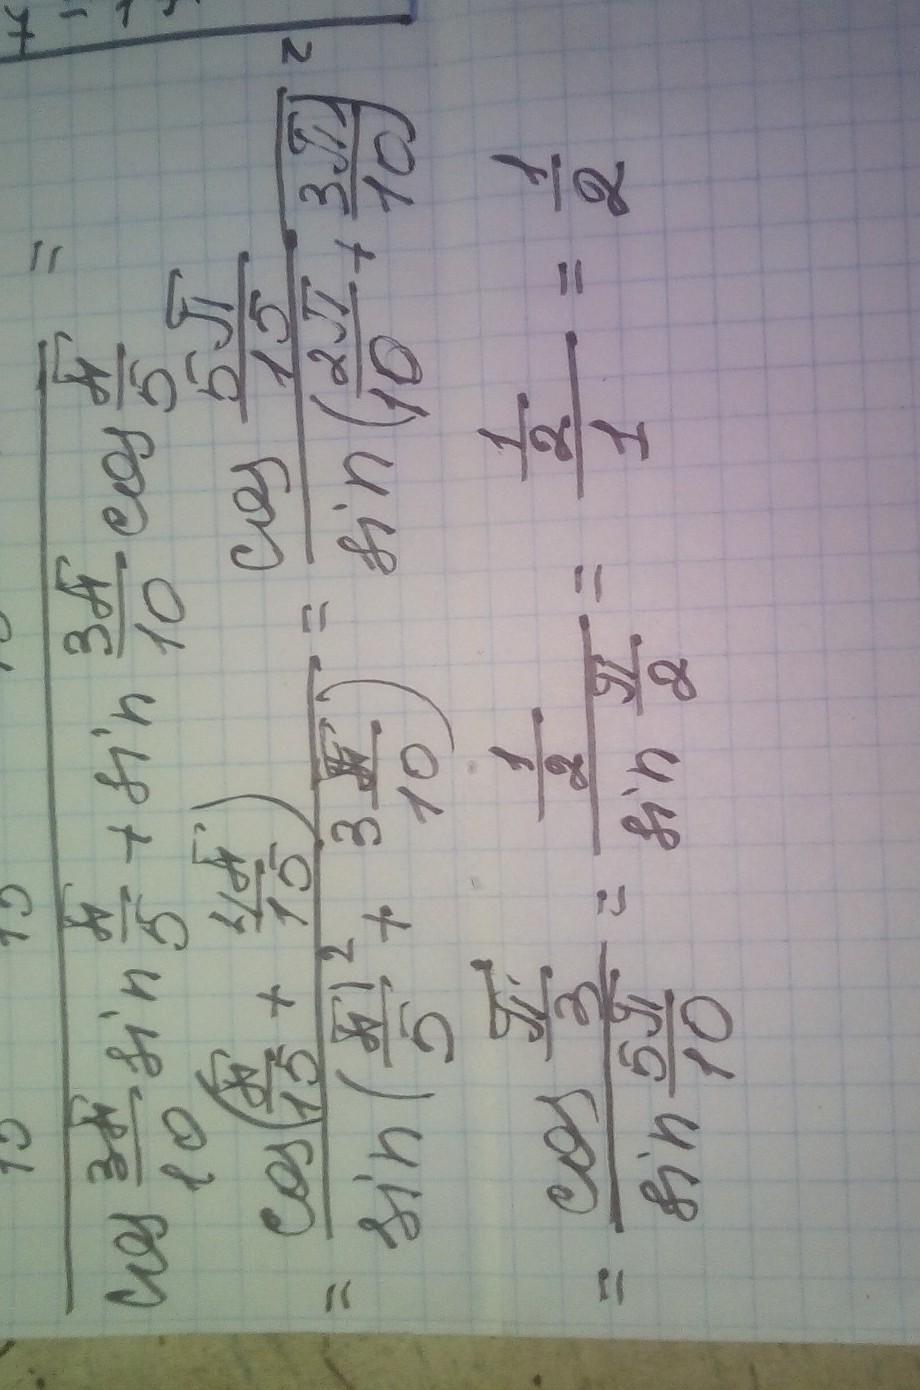 7 -
15 15
cos 3π/10 sin π/5 + sin 3π/10 cos π/5 =
= cos(π/15 + 4π/15) / sin(π/5 + 3π/10) = cos 5π/15 / sin(2π/10 + 3π/10)
= cos π/3 / sin 5π/10 = 1/2 / sin π/2 = 1/2 / 1 = 1/2